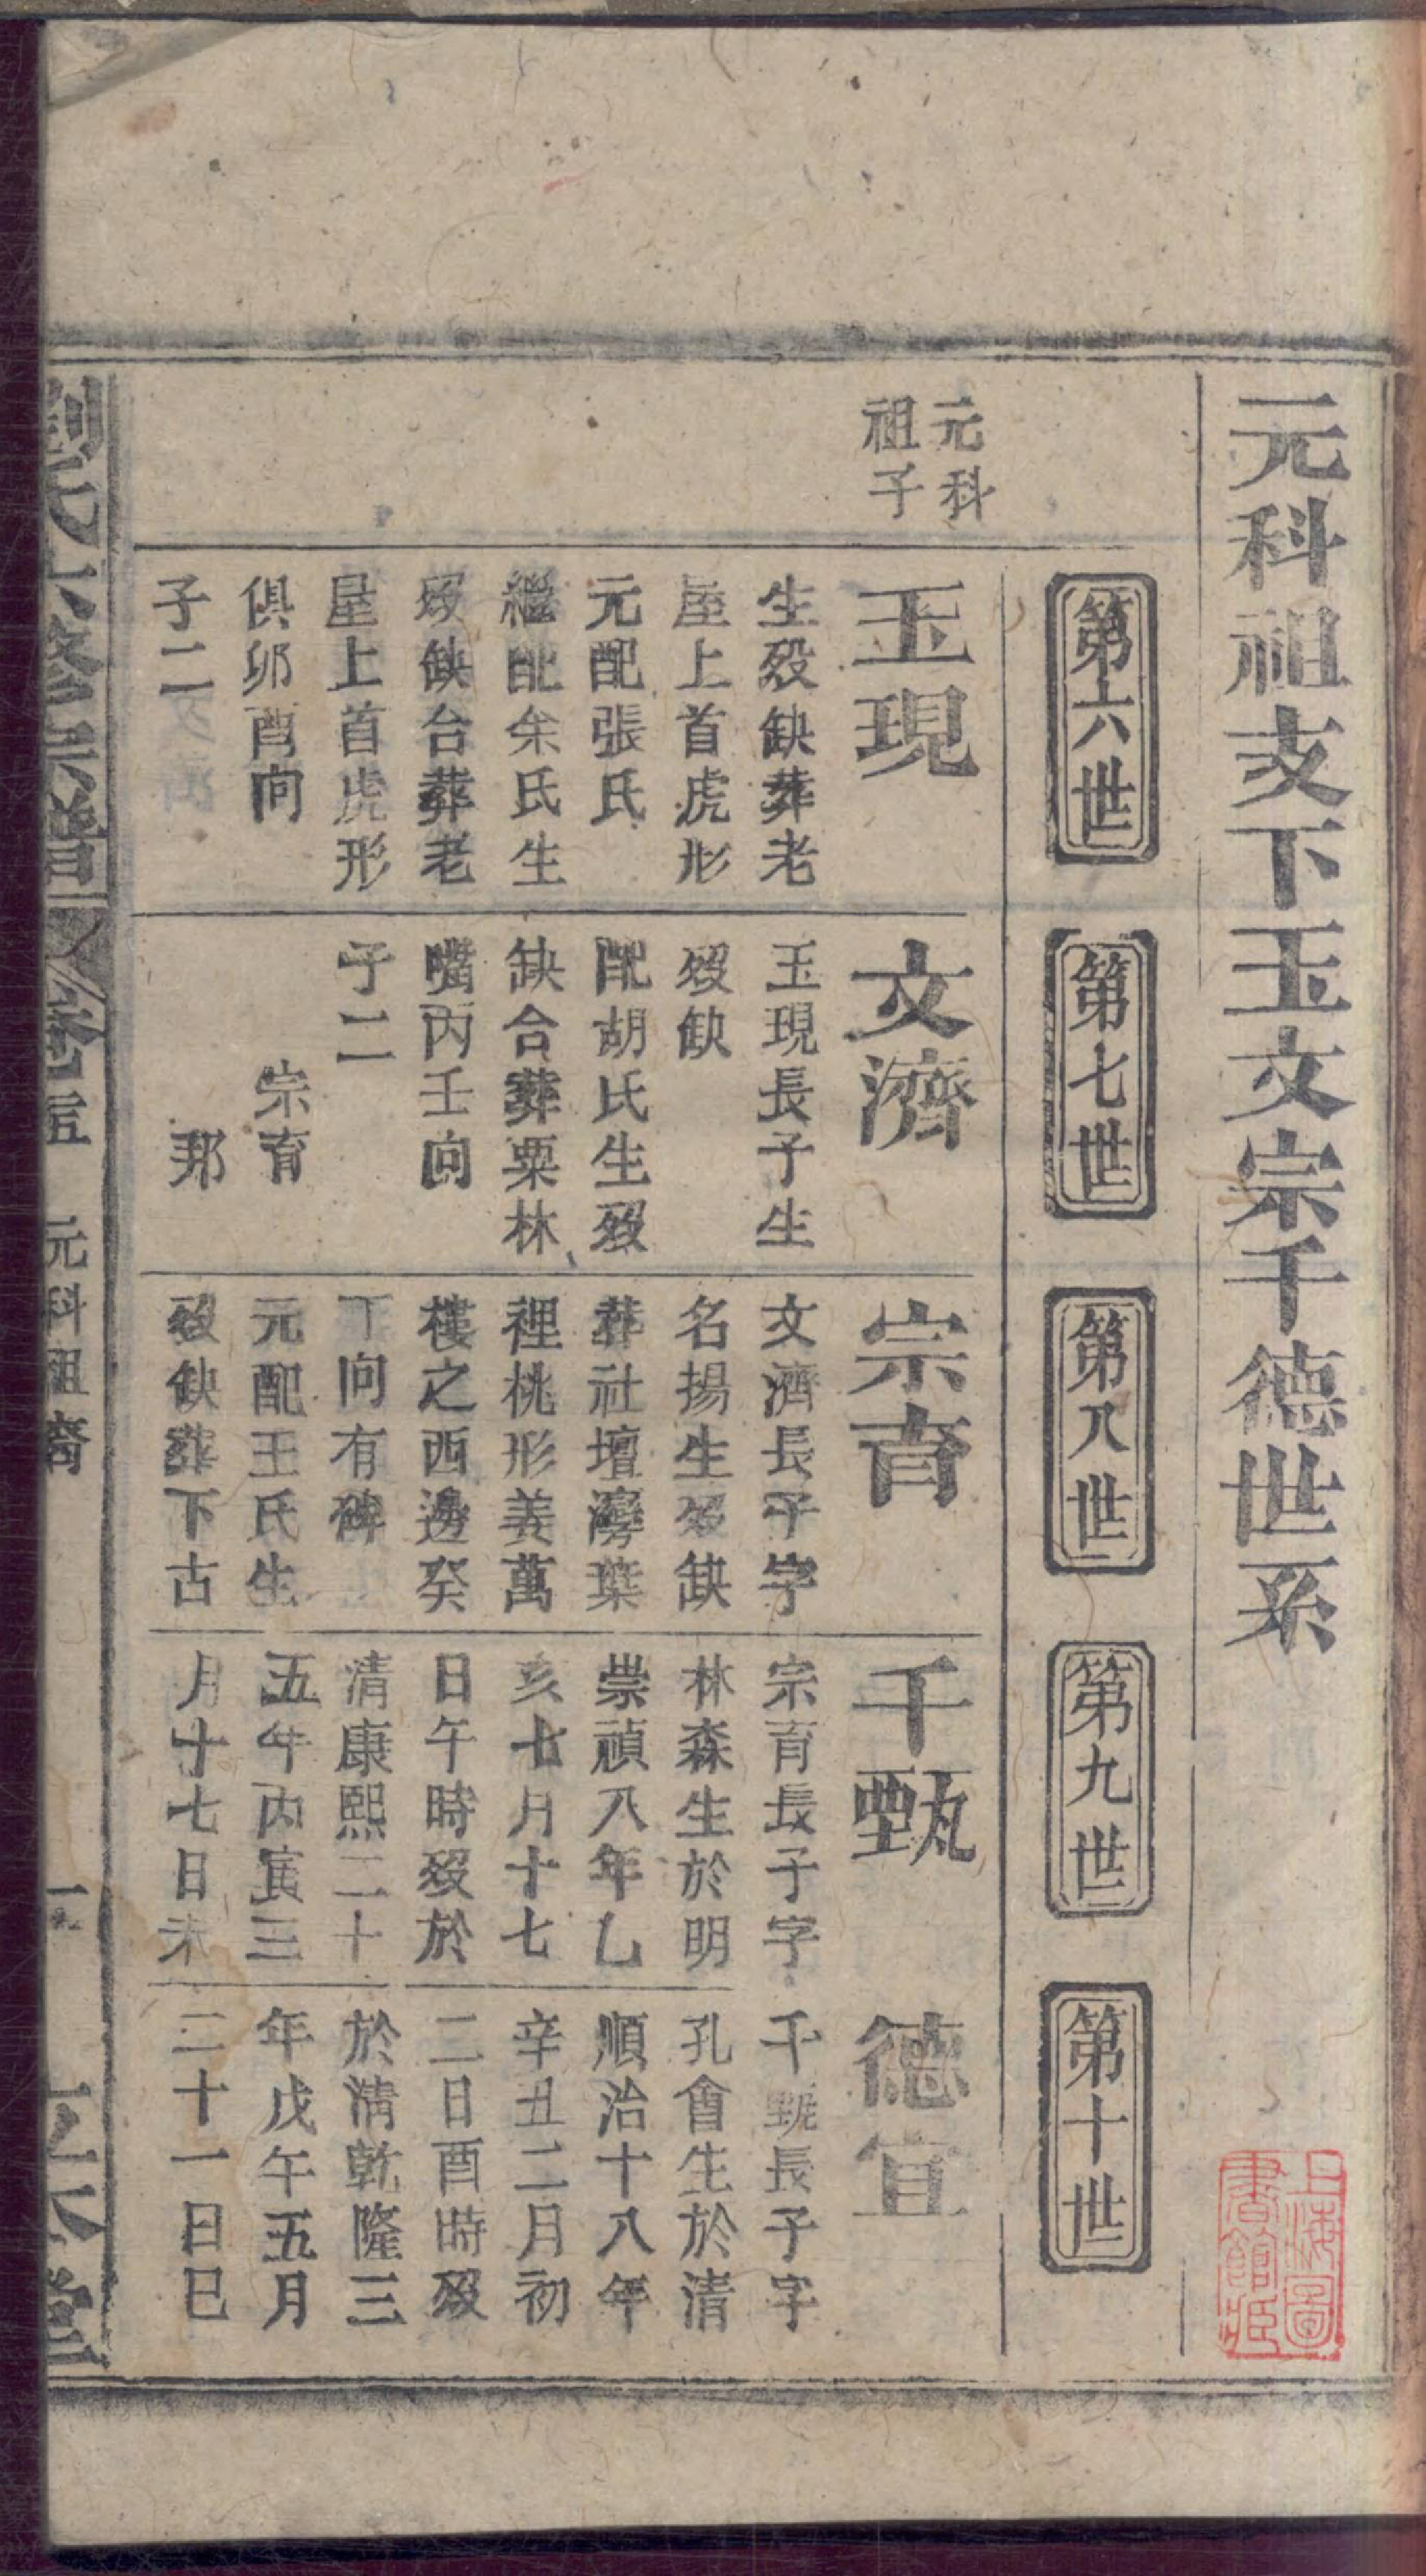 元科祖支下玉文宗千德世系
上海圖
書館藏
第六世
第七世
第八世
第九世
第十世
元科
祖子
玉現
生歿缺葬老
屋上首虎形
元配張氏
繼配余氏生
歿缺合葬老
屋上首虎形
俱卯酉向
子二
文濟
玉現長子生
歿缺
配胡氏生歿
缺合葬粟林
嘴丙壬向
子二
宗育
邦
宗育
文濟長子字
名揚生歿缺
葬社壇灣葉
裡桃形姜萬
樓之西邊癸
丁向有碑
元配王氏生
歿缺葬下古
千甄
宗育長子字
林森生於明
崇禎八年乙
亥七月十七
日午時歿於
清康熙二十
五年丙寅三
月十七日未
德宜
千甄長子字
孔會生於清
順治十八年
辛丑二月初
二日酉時歿
於清乾隆三
年戊午五月
二十一日巳
劉氏六修宗譜
卷五
元科祖裔